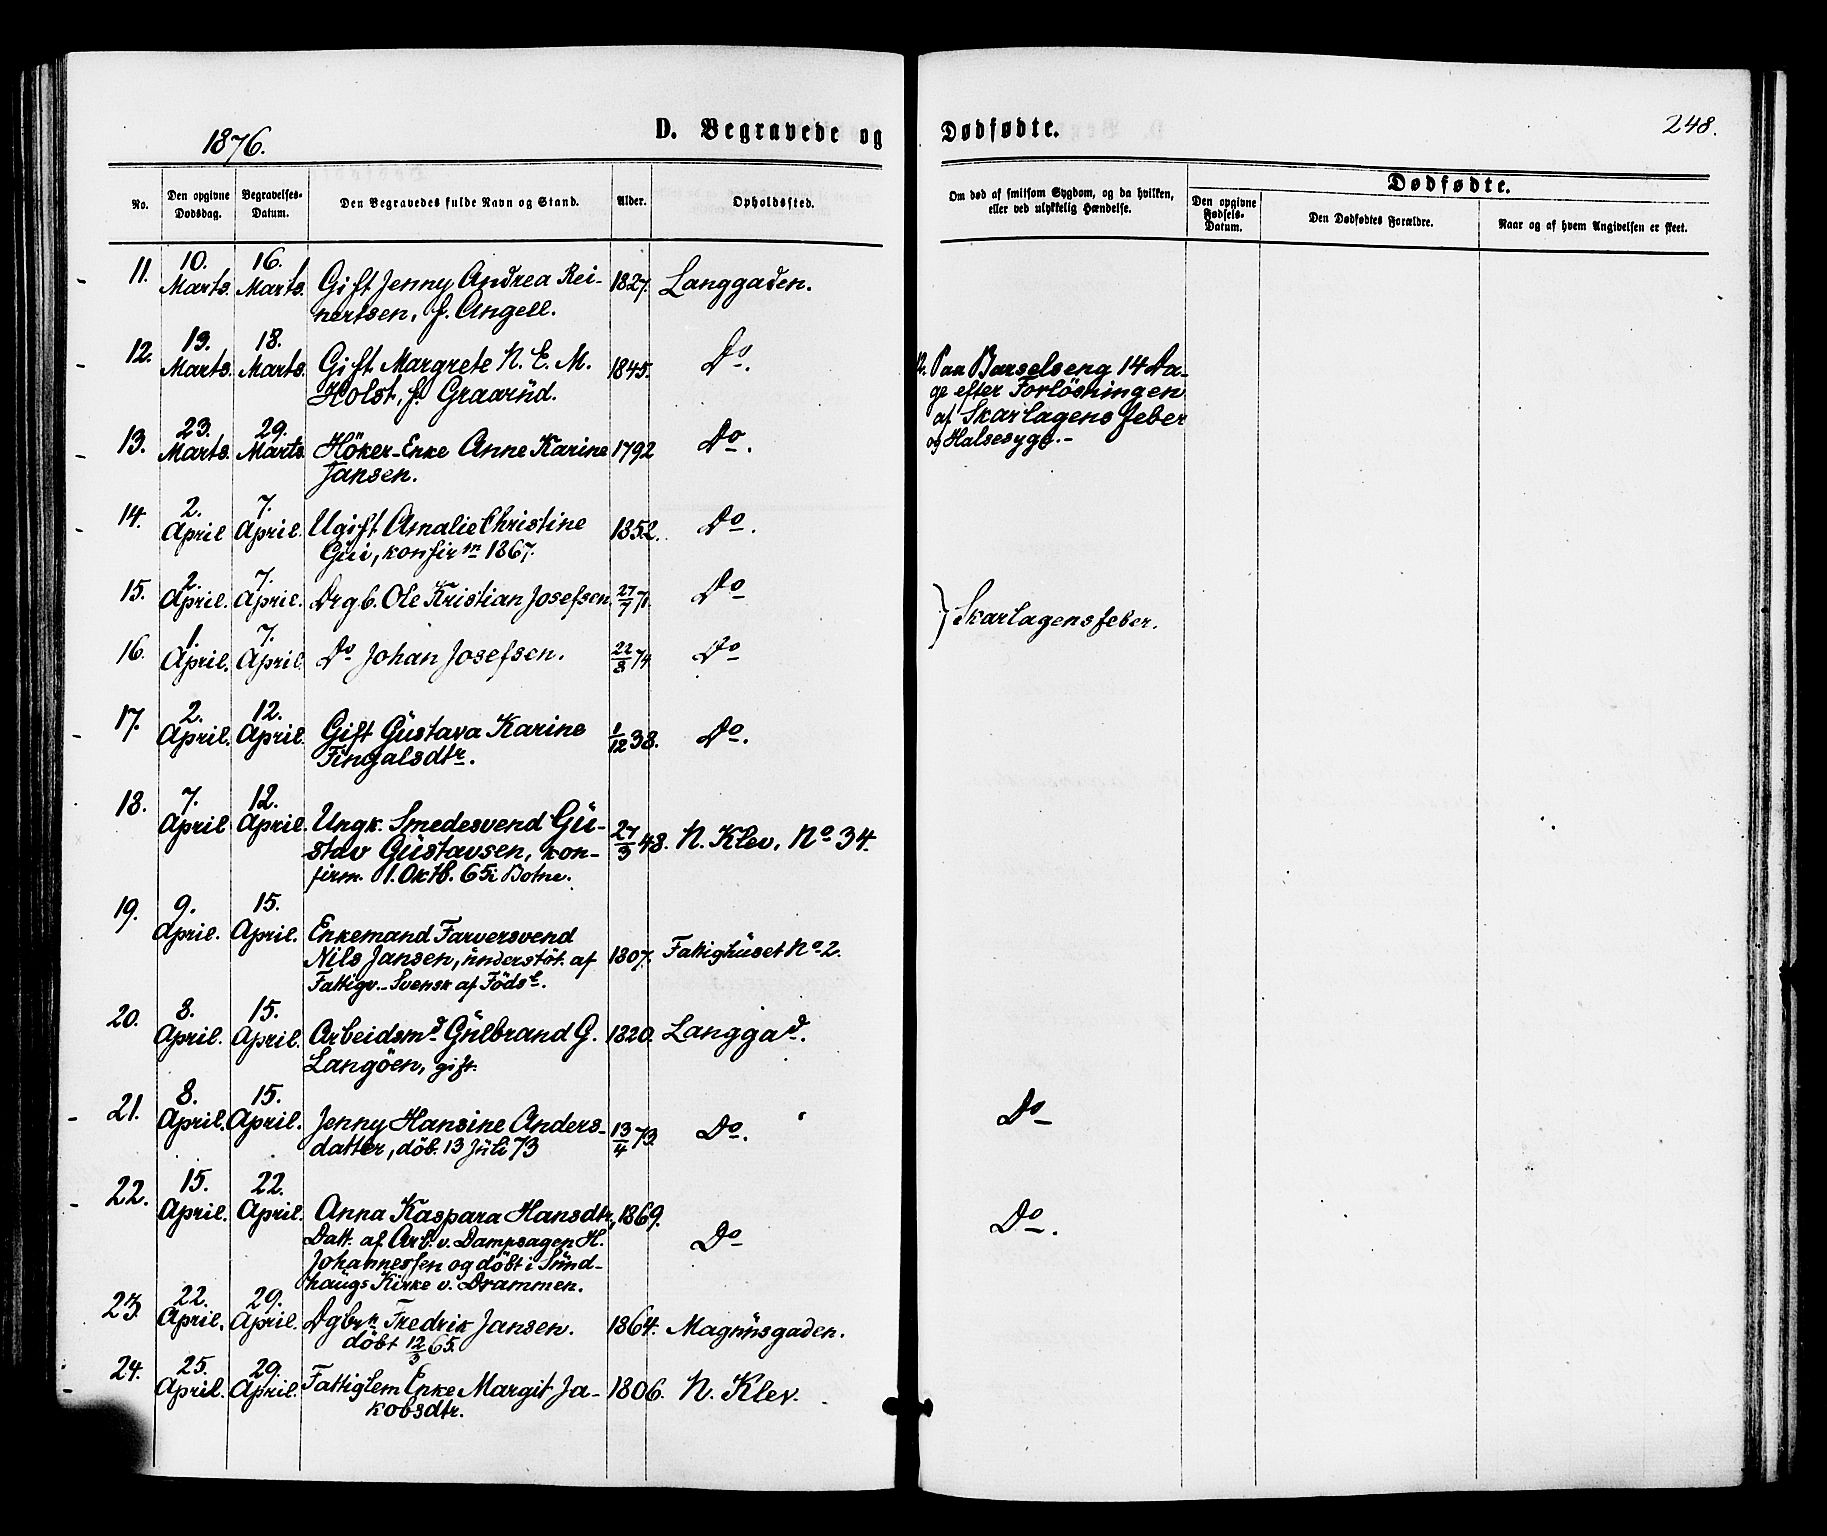 1876.
D. Begravede og
Dødfødte.
248.
No.
Den opgivne Dødsdag.
Begravelses-Datum.
Den Begravedes fulde Navn og Stand.
Alder.
Opholdssted.
Om død af smitsom Sygdom, og da hvilken, eller ved ulykkelig Hændelse.
Dødfødte.
Den opgivne Fødsels-Datum.
Den Dødfødtes Forældre.
Naar og af hvem Angivelsen er skeet.
11. 10. Marts. 16. Marts. Gift Jenny Andrea Rei- 1827. Langgaden.
nertsen, f. Angell.
12. 13. Marts. 18. Marts. Gift Margrete N. E. M. 1845. Do. 12. Paa Barselseng 14 Da-
Holst, f. Graarud. ge efter Forlösningen
af Skarlagensfeber
og Halsesyge.-
13. 23. Marts. 29. Marts. Höker-Enke Anne Karine 1792 Do.
Jansen.
14. 2. April 7. April. Ugift Amalie Christine 1852. Do.
Gui, konfirm 1867.
15. 2. April. 7. April. Drgb. Ole Kristian Josefsen 27/7 71. Do
} Skarlagensfeber.
16. 1. April. 7. April. Do Johan Josefsen. 22/8 74 Do
17. 2. April. 12. April. Gift Gustava Karine 1/12 38. Do.
Fingalsdtr.
18. 7. April 12. April. Ungk. Smedesvend Gu- 27/3 48. N. Klev, No 34.
stav Gustavsen, kon-
firm. 1. Oktb. 65 i Botne.
19. 9. April. 15. April. Enkemand Farversvend
Nils Jansen, understöt. af 1807. Fattighuset No 2.
Fattigv.- Svensk af Föds.
20. 8. April. 15. April. Arbeidsmd Gulbrand G. 1820. Langgad.
Langöen, gift.
21. 8. April. 15. April. Jenny Hansine Anders- 13/4 73. Do. Do
datter, döb. 13 Juli 73
22. 15. April. 22. April. Anna Kaspara Hansdtr, 1869. Do Do.
Datt. af Arb. v. Dampsagen H.
Johannessen og döbt i Sund-
haugs Kirke v. Drammen.
23. 22. April. 29. April. Dgbrn Fredrik Jansen. 1864. Magnusgaden.
döbt 12/3 65.
24. 25. April. 29. April. Fattiglem Enke Margit Ja- 1806. N. Klev.
kobsdtr.